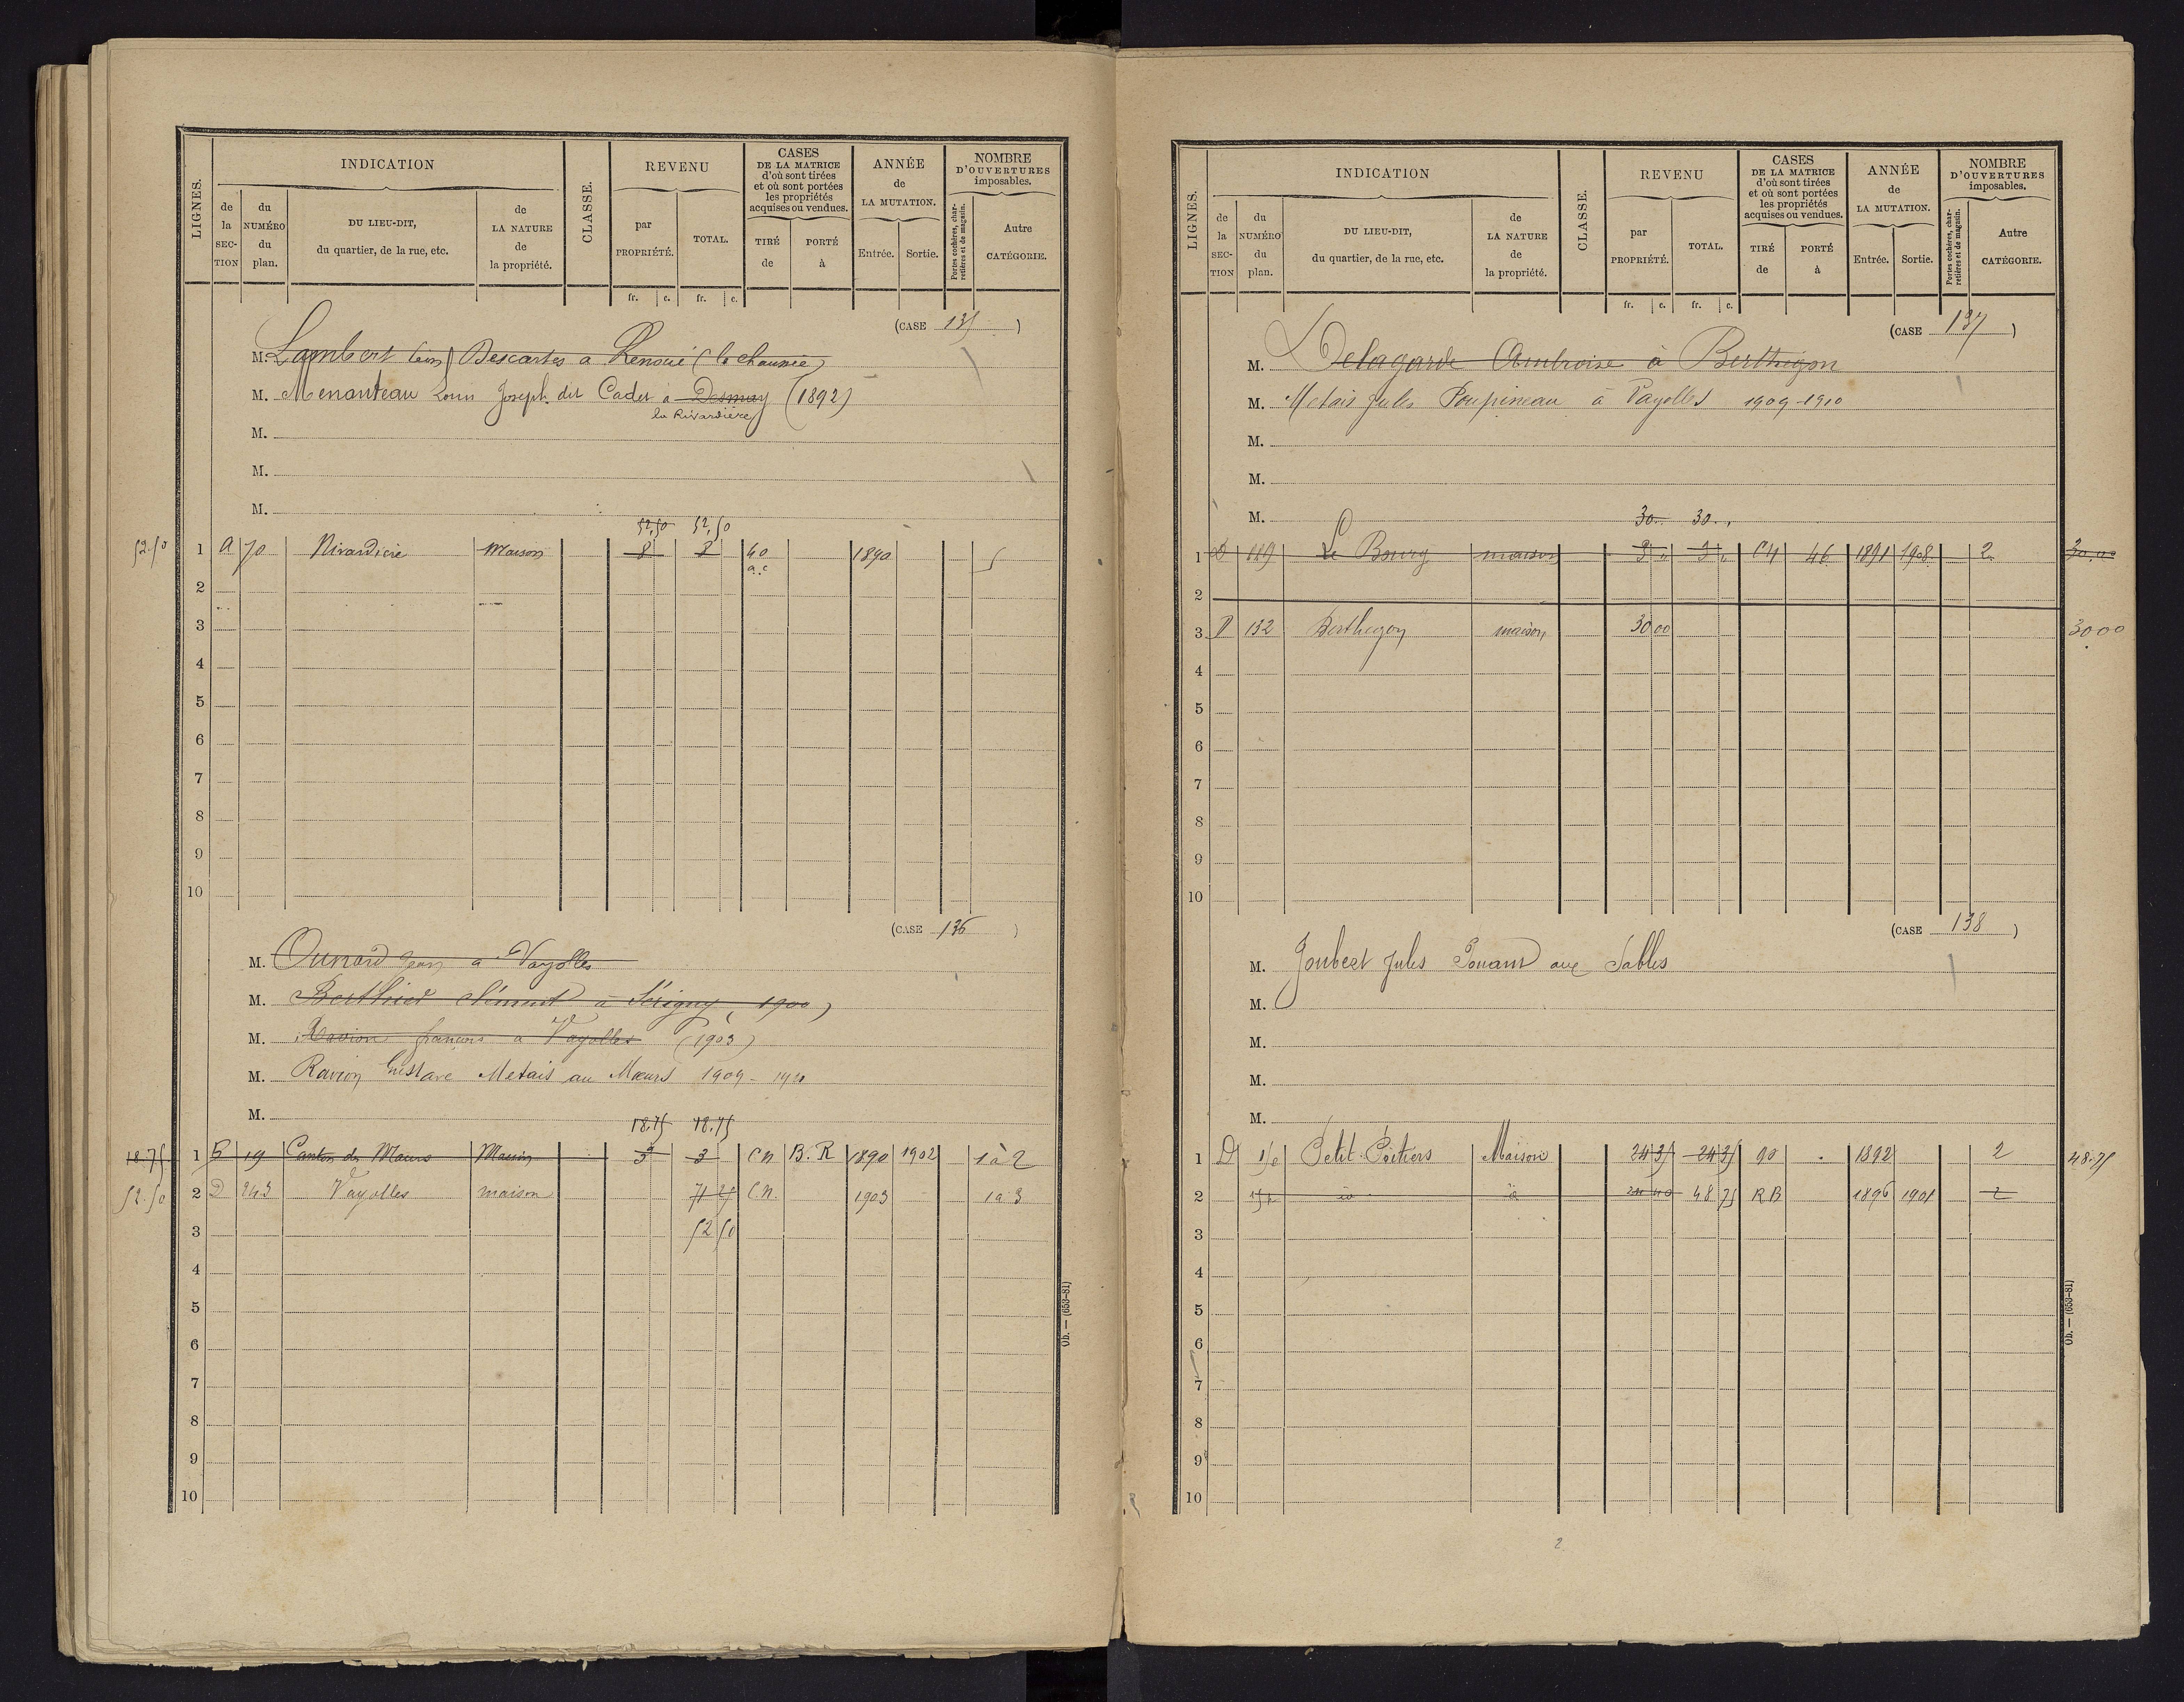 LIGNES.
INDICATION
de la SECTION
du NUMÉRO du plan.
DU LIEU-DIT, du quartier, de la rue, etc.
de LA NATURE de la propriété.
CLASSE.
REVENU
par PROPRIÉTÉ.
TOTAL.
fr. c. fr. c.
CASES DE LA MATRICE d'où sont tirées et où sont portées les propriétés acquises ou vendues.
TIRÉ de
PORTÉ à
ANNÉE de LA MUTATION.
Entrée. Sortie.
NOMBRE D'OUVERTURES imposables.
Portes cochères, charretières et de magasin.
Autre CATÉGORIE.
(CASE 135)
M. Lambert Descartes a (la chaunée)
M. Menanteau Louis Joseph dit Cadet à Desmay (1892)
la Rivardière
M.
M.
M.
52,50 52,50
52.50 1 A 70 Rivardière Maison 8 8 60 1890
a.c
2
3
4
5
6
7
8
9
10
(CASE 136)
M. Jean a Vayolles
M. Berthier Clément à Sérigny, 1900)
M. Ravion françois a Vayolles (1903)
M. Ravion Gustave Metais au Mœurs 1909 - 1910
M.
18.75 18.75
18.75 1 19 Canton des Maurs Maison 3 3 CN B.R 1890 1902 1 à 2
52.50 2 D 243 Vayolles maison 71 25 C.N. 1903 1 a 3
3 52 50
4
5
6
7
8
9
10
Ob. — (653-81)
LIGNES.
INDICATION
de la SECTION
du NUMÉRO du plan.
DU LIEU-DIT, du quartier, de la rue, etc.
de LA NATURE de la propriété.
CLASSE.
REVENU
par PROPRIÉTÉ.
TOTAL.
fr. c. fr. c.
CASES DE LA MATRICE d'où sont tirées et où sont portées les propriétés acquises ou vendues.
TIRÉ de
PORTÉ à
ANNÉE de LA MUTATION.
Entrée. Sortie.
NOMBRE D'OUVERTURES imposables.
Portes cochères, charretières et de magasin.
Autre CATÉGORIE.
(CASE 137)
M. Delagarde Ambroise à Berthegon
M. Metais Jules Poupineau à Vayolles 1909-1910
M.
M.
M.
30. 30.
1 D 149 Le Bourg maison 3 3 CN 46 1891 1908 2 30.00
2
3 D 132 Berthegon maison 30 00 30 00
4
5
6
7
8
9
10
(CASE 138)
M. Joubert Jules aux Sables
M.
M.
M.
M.
1 D Petit Poitiers Maison 24 35 24 35 90 1892 2 48.75
2 id id 24 40 48 75 RB 1896 1901 2
3
4
5
6
7
8
9
10
Ob. — (653-81)
2